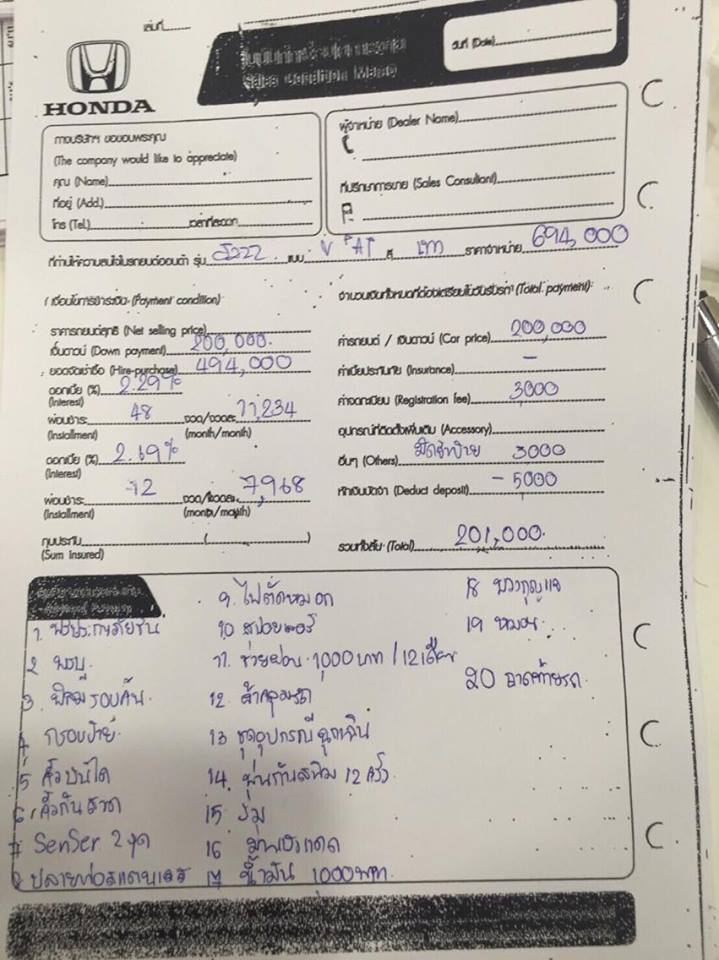 เล่มที่
HONDA
Sales Condition Memo
วันที่ (Date)
ทางบริษัทฯ ขอขอบพระคุณ
(The company would like to appreciate)
คุณ (Name)
ที่อยู่ (Add.)
โทร (Tel.) เวลาที่สะดวก
ผู้จำหน่าย (Dealer Name)
ที่ปรึกษาการขาย (Sales Consultant)
ที่ท่านให้ความสนใจในรถยนต์ฮอนด้า รุ่น แบบ V AT สี เทา ราคาจำหน่าย 694,000
เงื่อนไขการชำระเงิน (Payment condition)
ราคารถยนต์สุทธิ (Net selling price)
เงินดาวน์ (Down payment) 200,000.
ยอดจัดเช่าซื้อ (Hire-purchase) 494,000
ดอกเบี้ย (%) 2.29%
(Interest)
ผ่อนชำระ 48 งวด/งวดละ 11,234
(Installment) (month/month)
ดอกเบี้ย (%) 2.69%
(Interest)
ผ่อนชำระ 12 งวด/งวดละ 7,968
(Installment) (month/month)
ทุนประกัน ( )
(Sum Insured)
จำนวนเงินทั้งหมดที่ต้องเตรียมในวันรับรถ (Total payment)
ค่ารถยนต์ / เงินดาวน์ (Car price) 200,000
ค่าเบี้ยประกันภัย (Insurance) -
ค่าจดทะเบียน (Registration fee) 3,000
อุปกรณ์ที่ติดตั้งเพิ่มเติม (Accessory)
อื่นๆ (Others) มัดจำป้าย 3000
หักเงินมัดจำ (Deduct deposit) - 5000
รวมทั้งสิ้น (Total) 201,000.
1. ฟรีประกันภัยชั้น
2 พรบ.
3. ฟิล์มรอบคัน
4 กรอบป้าย
5 คิ้วบันได
6. คิ้วกันสาด
7 Senser 2 จุด
8 ปลายท่อสแตนเลส
9. ไฟตัดหมอก
10 สปอยเลอร์
11. ช่วยผ่อน 1,000 บาท / 12 เดือน
12. ผ้าคลุมรถ
13 ชุดอุปกรณ์ฉุกเฉิน
14. พ่นกันสนิม 12 ครั้ง
15 ร่ม
16 ม่านบังแดด
17 น้ำมัน 1,000 บาท.
18 พวงกุญแจ
19 หมอน
20 ถาดท้ายรถ